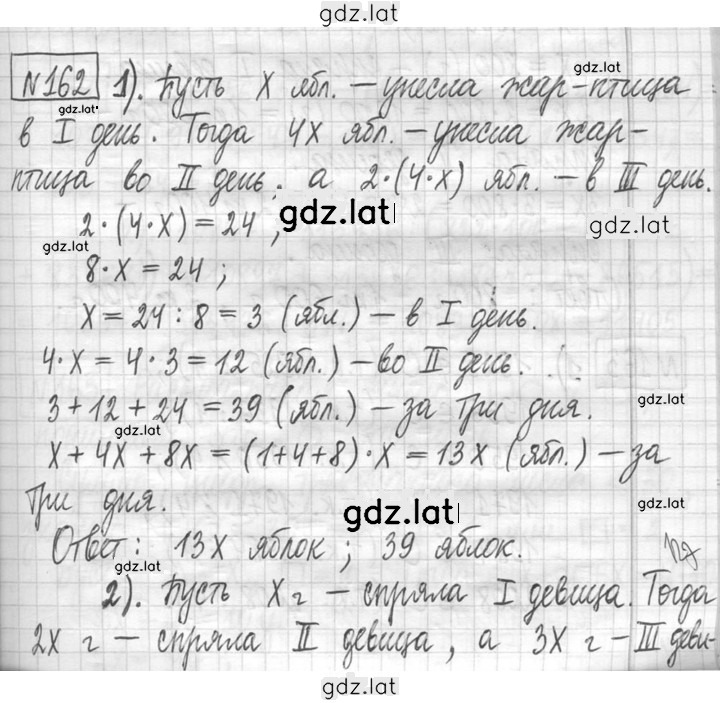 gdz.lat
№162 1). Пусть x ябл. – унесла жар-птица
gdz.lat
gdz.lat
в I день. Тогда 4x ябл. – унесла жар-
птица во II день, а 2·(4·x) ябл. – в III день.
2·(4·x) = 24 ;
gdz.lat
gdz.lat
gdz.lat
8·x = 24 ;
x = 24 : 8 = 3 (ябл.) – в I день.
4·x = 4·3 = 12 (ябл.) – во II день.
3+12+24 = 39 (ябл.) – за три дня.
gdz.lat
gdz.lat
x+4x+8x = (1+4+8)·x = 13x (ябл.) – за
три дня.
gdz.lat
gdz.lat
Ответ: 13x яблок ; 39 яблок.
gdz.lat
2). Пусть x г – спряла I девица. Тогда
2x г – спряла II девица, а 3x г – III деви-
gdz.lat